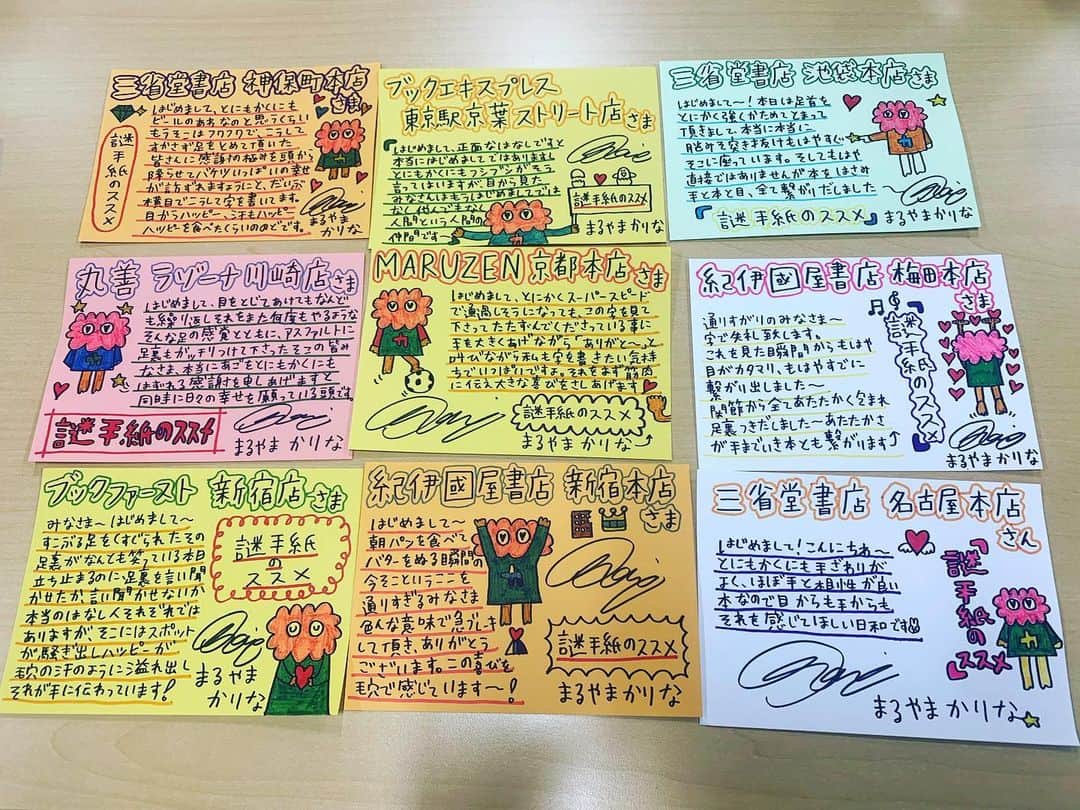 三省堂書店 神保町本店さま
はじめまして、とにもかくにも
ビールのあちなのと思うくらい
もうそこはフワフワで、こうして
すかさず足をとめて頂いた
皆さんに感謝の極みを頭から
降らせてバケツいっぱいの幸せ
が訪ずれますようにと、だいぶ
本着目でこうして字を書いてます。
目からハッピー、汗もハッピー
ハッピーを食べたくらいののどです。
謎手紙のススメ
まるやま
かりな
ブックエキスプレス
東京駅京葉ストリート店さま
はじめまして、正面なはなしですと
本当にはじめましてではありますし
とにもかくにもフシブシがそう
言ってはいますが、目から見た
みなさんはもうはじめましてでは
なく他人でもなく
人間という人間の
仲間です〜
謎手紙のススメ
まるやまかりな
三省堂書店 池袋本店さま
はじめまして〜!本日は足首を
とにかく強くかためてとまって
頂きまして、本当に本当に
脳みそ突き抜けもはやすぐ
そこに座っています。そしてもはや
直接ではありませんが本をはさみ
手と本と目、全て繋がりだしました〜
『謎手紙のススメ』
まるやまかりな
丸善 ラゾーナ川崎店さま
はじめまして、目をとじてあけてもなんど
も繰り返しそれをまた何度もやるような
そんな足の感覚とともに、アスファルトに
足裏もガッチリつけて下さったそこの皆み
なさま、本当にあごをとにもかくにも
はずれる感謝を申しあげますと
同時に日々の幸せを願っている頭です
謎手紙のススメ
まるやまかりな
MARUZEN 京都本店さま
はじめまして、とにかくスーパースピード
で通過しそうになっても、この字を見て
下さってたたずんでくださっている事に
手を大きくあげながら"ありがと〜"っと
叫びながら私も字を書きたい気持
ちでいっぱいですよ。それをまず筋肉
に伝え大きな喜びをさしあげます
謎手紙のススメ
まるやまかりな
紀伊國屋書店 梅田本店さま
通りすがりのみなさま〜
字で失礼致します。
これを見た瞬間からもはや
目がカタマリ、もはやすでに
繋がり出しました〜
関節から全てあたたかく包まれ
足裏つきだしました〜あたたかさ
が手までいき本とも繋がります
謎手紙のススメ
まるやまかりな
ブックファースト 新宿店さま
みなさま〜はじめまして〜
すこぶる足をくすぐられたその
足裏がなんとも笑っている本日
立ち止まるのに足裏を言い聞
かせたか、言い聞かせないか
本当のはなし人それぞれでは
ありますが、そこにはスポット
が騒ぎ出しハッピーが
毛穴の汗のように溢れ出し
それが手に伝わっています!
謎手紙
の
ススメ
まるやま
かりな
紀伊國屋書店 新宿本店さま
はじめまして〜
朝パンを食べて
バターをぬる瞬間の
今そこというここを
通りすぎるみなさま
色んな意味で急ブレーキ
して頂き、ありがとう
ございます。この喜びを
毛穴で感じています〜!
謎手紙のススメ
まるやまかりな
三省堂書店 名古屋本店さん
はじめまして!こんにちわ〜
とにもかくにも手ざわりが
よく、ほぼ手と相性が良い
本なので目からも手からも
それを感じてほしい日和です
『謎手紙のススメ』
まるやまかりな